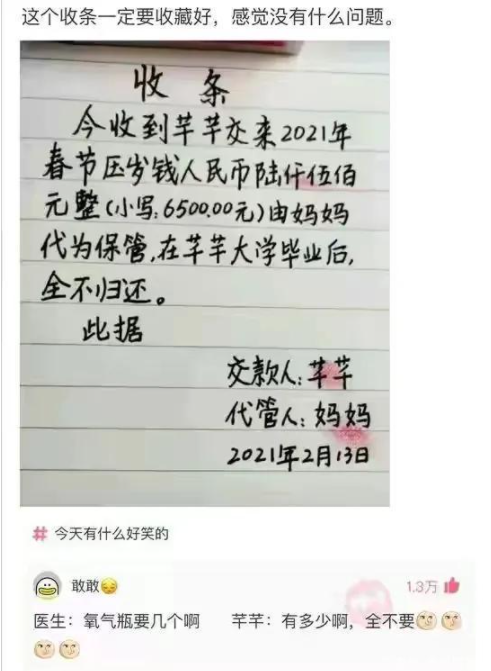 这个收条一定要收藏好，感觉没有什么问题。
收条
今收到芊芊交来2021年
春节压岁钱人民币陆仟伍佰
元整(小写:6500.00元)由妈妈
代为保管,在芊芊大学毕业后,
全不归还。
此据
交款人:芊芊
代管人:妈妈
2021年2月13日
# 今天有什么好笑的
敢敢😔
1.3万
医生：氧气瓶要几个啊 芊芊：有多少啊，全不要